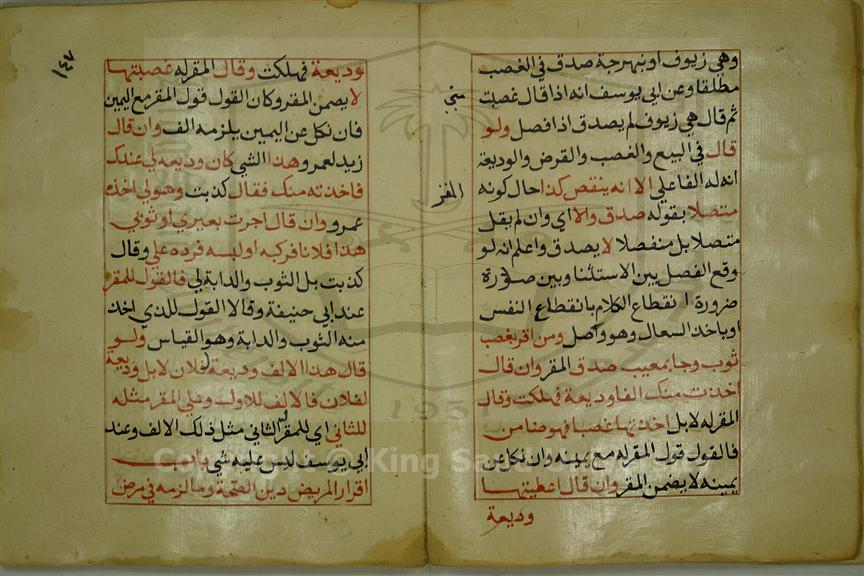 وهي زيوف او نبهرجة صدق في الغصب
مطلقا وعن ابي يوسف انه اذا قال غصبت
ثم قال هي زيوف لم يصدق اذا فصل ولو
قال في البيع والغصب والقرض والوديعة
انه له الفا علي الا انه ينقص كذا حال كونه
متصلا بقوله صدق والا اي وان لم يقل
متصلا بل منفصلا لا يصدق واعلم انه لو
وقع الفصل بين الاستثنا وبين صورة
ضرورة انقطاع الكلام بانقطاع النفس
او باخذ السعال وهو واصل ومن اقر بغصب
ثوب وجا بمعيب صدق المقر وان قال
اخذت منك الفا وديعة فهلكت وقال
المقر له لا بل اخذتها غصبا فهو ضامن
فالقول قول المقر له مع يمينه وان نكل عن
يمينه لا يضمن المقر وان قال اعطيتها
وديعة
المقر
١٤٧
وديعة فهلكت وقال المقر له غصبتها
لا يضمن المقر وكان القول قول المقر مع اليمين
فان نكل عن اليمين يلزمه الف وان قال
زيد لعمرو هذا الشي كان وديعة لي عندك
فاخذته منك فقال كذبت وهو لي اخذه
عمرو وان قال اجرت بعيري او ثوبي
هذا فلانا فركبه او لبسه فرده علي وقال
كذبت بل الثوب والدابة لي فالقول للمقر
عند ابي حنيفة وقالا القول للذي اخذ
منه الثوب والدابة وهو القياس ولو
قال هذا الالف وديعة فلان لا بل وديعة
لفلان فالالف للاول وعلي المقر مثله
للثاني اي للمقر الثاني مثل ذلك الالف وعند
ابي يوسف ليس عليه شي باب
اقرار المريض دين الصحة وما لزمه في مرض
Copyright © King Saud University
1957